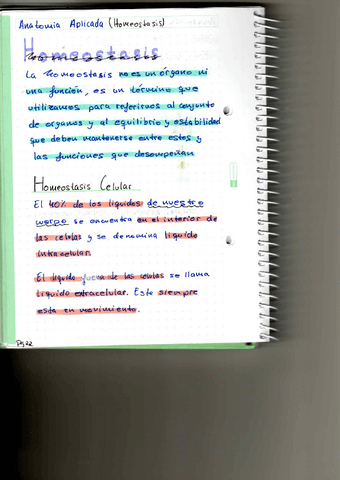 Anatomia Aplicada (Homeostasis)
Homeostasis
La homeostasis no es un órgano ni
una función, es un término que
utilizamos para referirnos al conjunto
de organos y al equilibrio y estabilidad
que deben mantenerse entre estos y
las funciones que desempeñan
Homeostasis Celular
El 40% de los liquidos de nuestro
cuerpo se encuentra en el interior de
las celulas y se denomina liquido
intracelular.
El liquido fuera de las celulas se llama
liquido extracelular. Este siempre
esta en movimiento.
Pg22